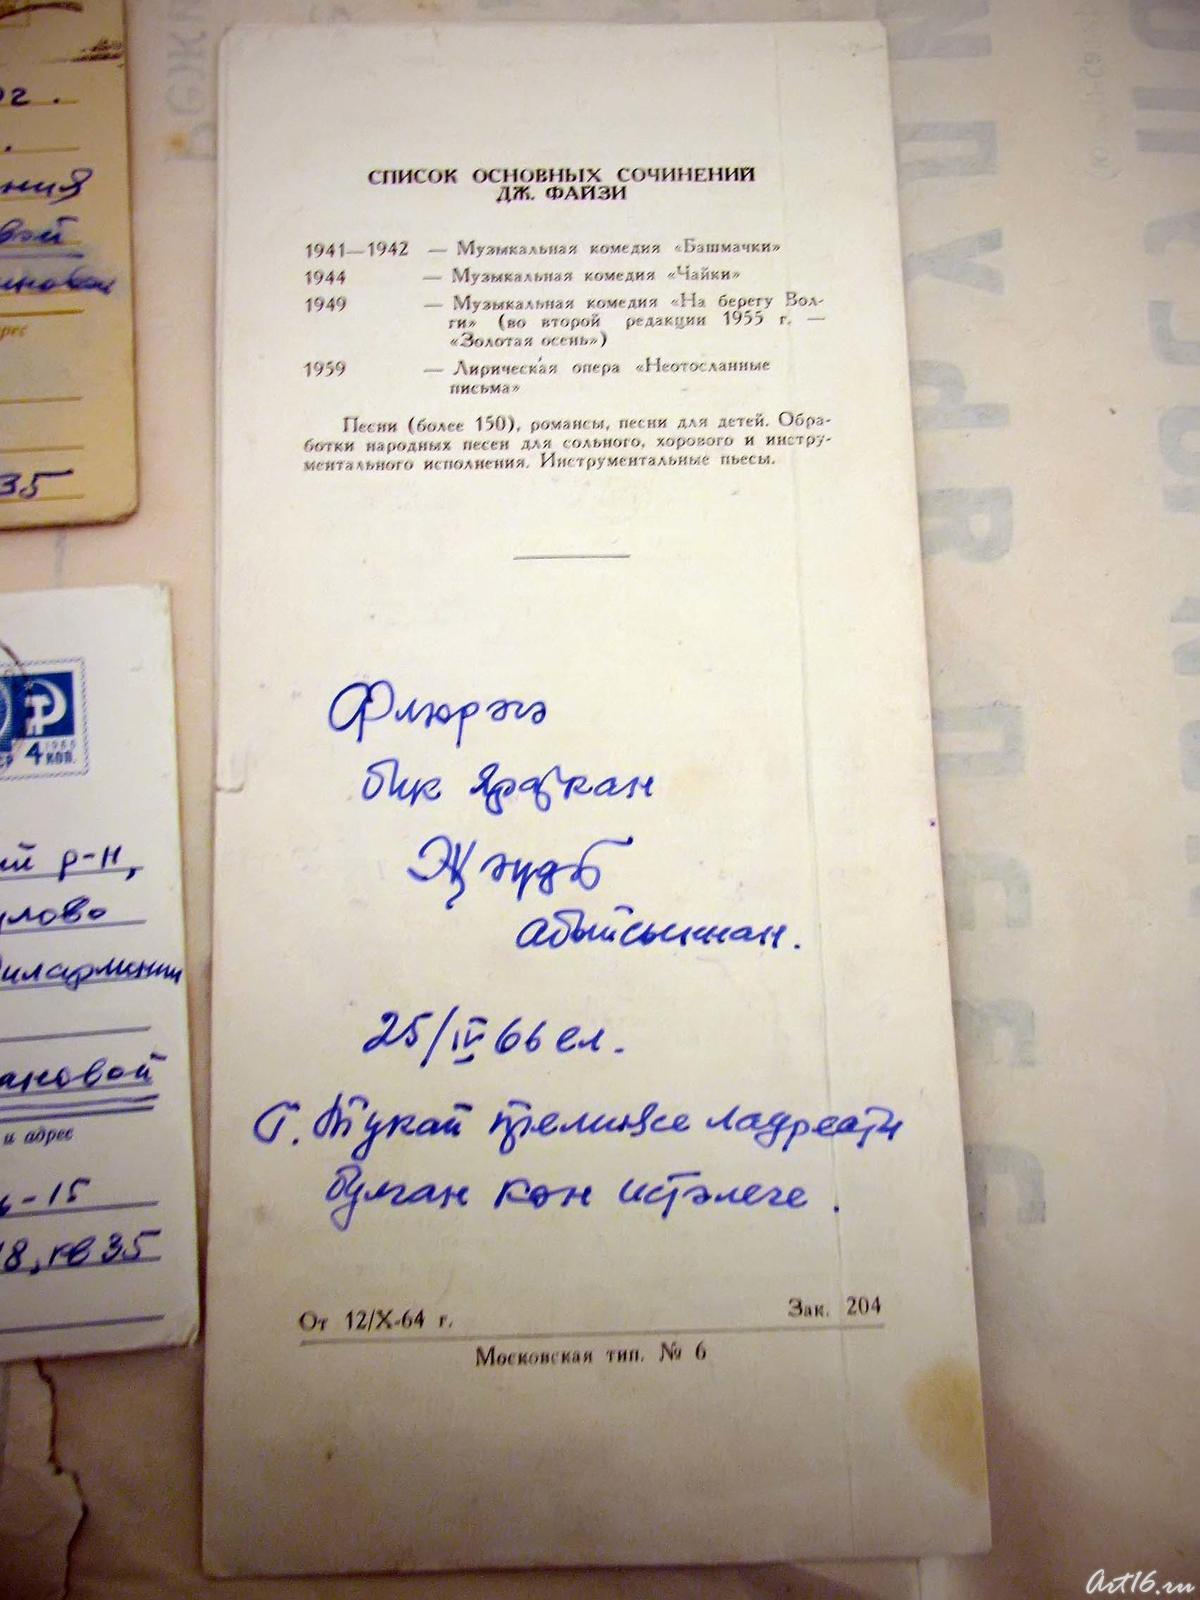 СПИСОК ОСНОВНЫХ СОЧИНЕНИЙ
ДЖ. ФАЙЗИ
1941—1942 — Музыкальная комедия «Башмачки»
1944 — Музыкальная комедия «Чайки»
1949 — Музыкальная комедия «На берегу Вол-
ги» (во второй редакции 1955 г. —
«Золотая осень»)
1959 — Лирическая опера «Неотосланные
письма»
Песни (более 150), романсы, песни для детей. Обра-
ботки народных песен для сольного, хорового и инстру-
ментального исполнения. Инструментальные пьесы.
Флюрәгә
бик яраткан
Җәүдәт
абыйсыннан.
25/IV 66 ел.
Г. Тукай премиясе лауреаты
булган көн истәлеге.
От 12/X-64 г. Зак. 204
Московская тип. № 6
35
4 коп.
р-н,
и адрес
-15
18, кв 35
Art16.ru